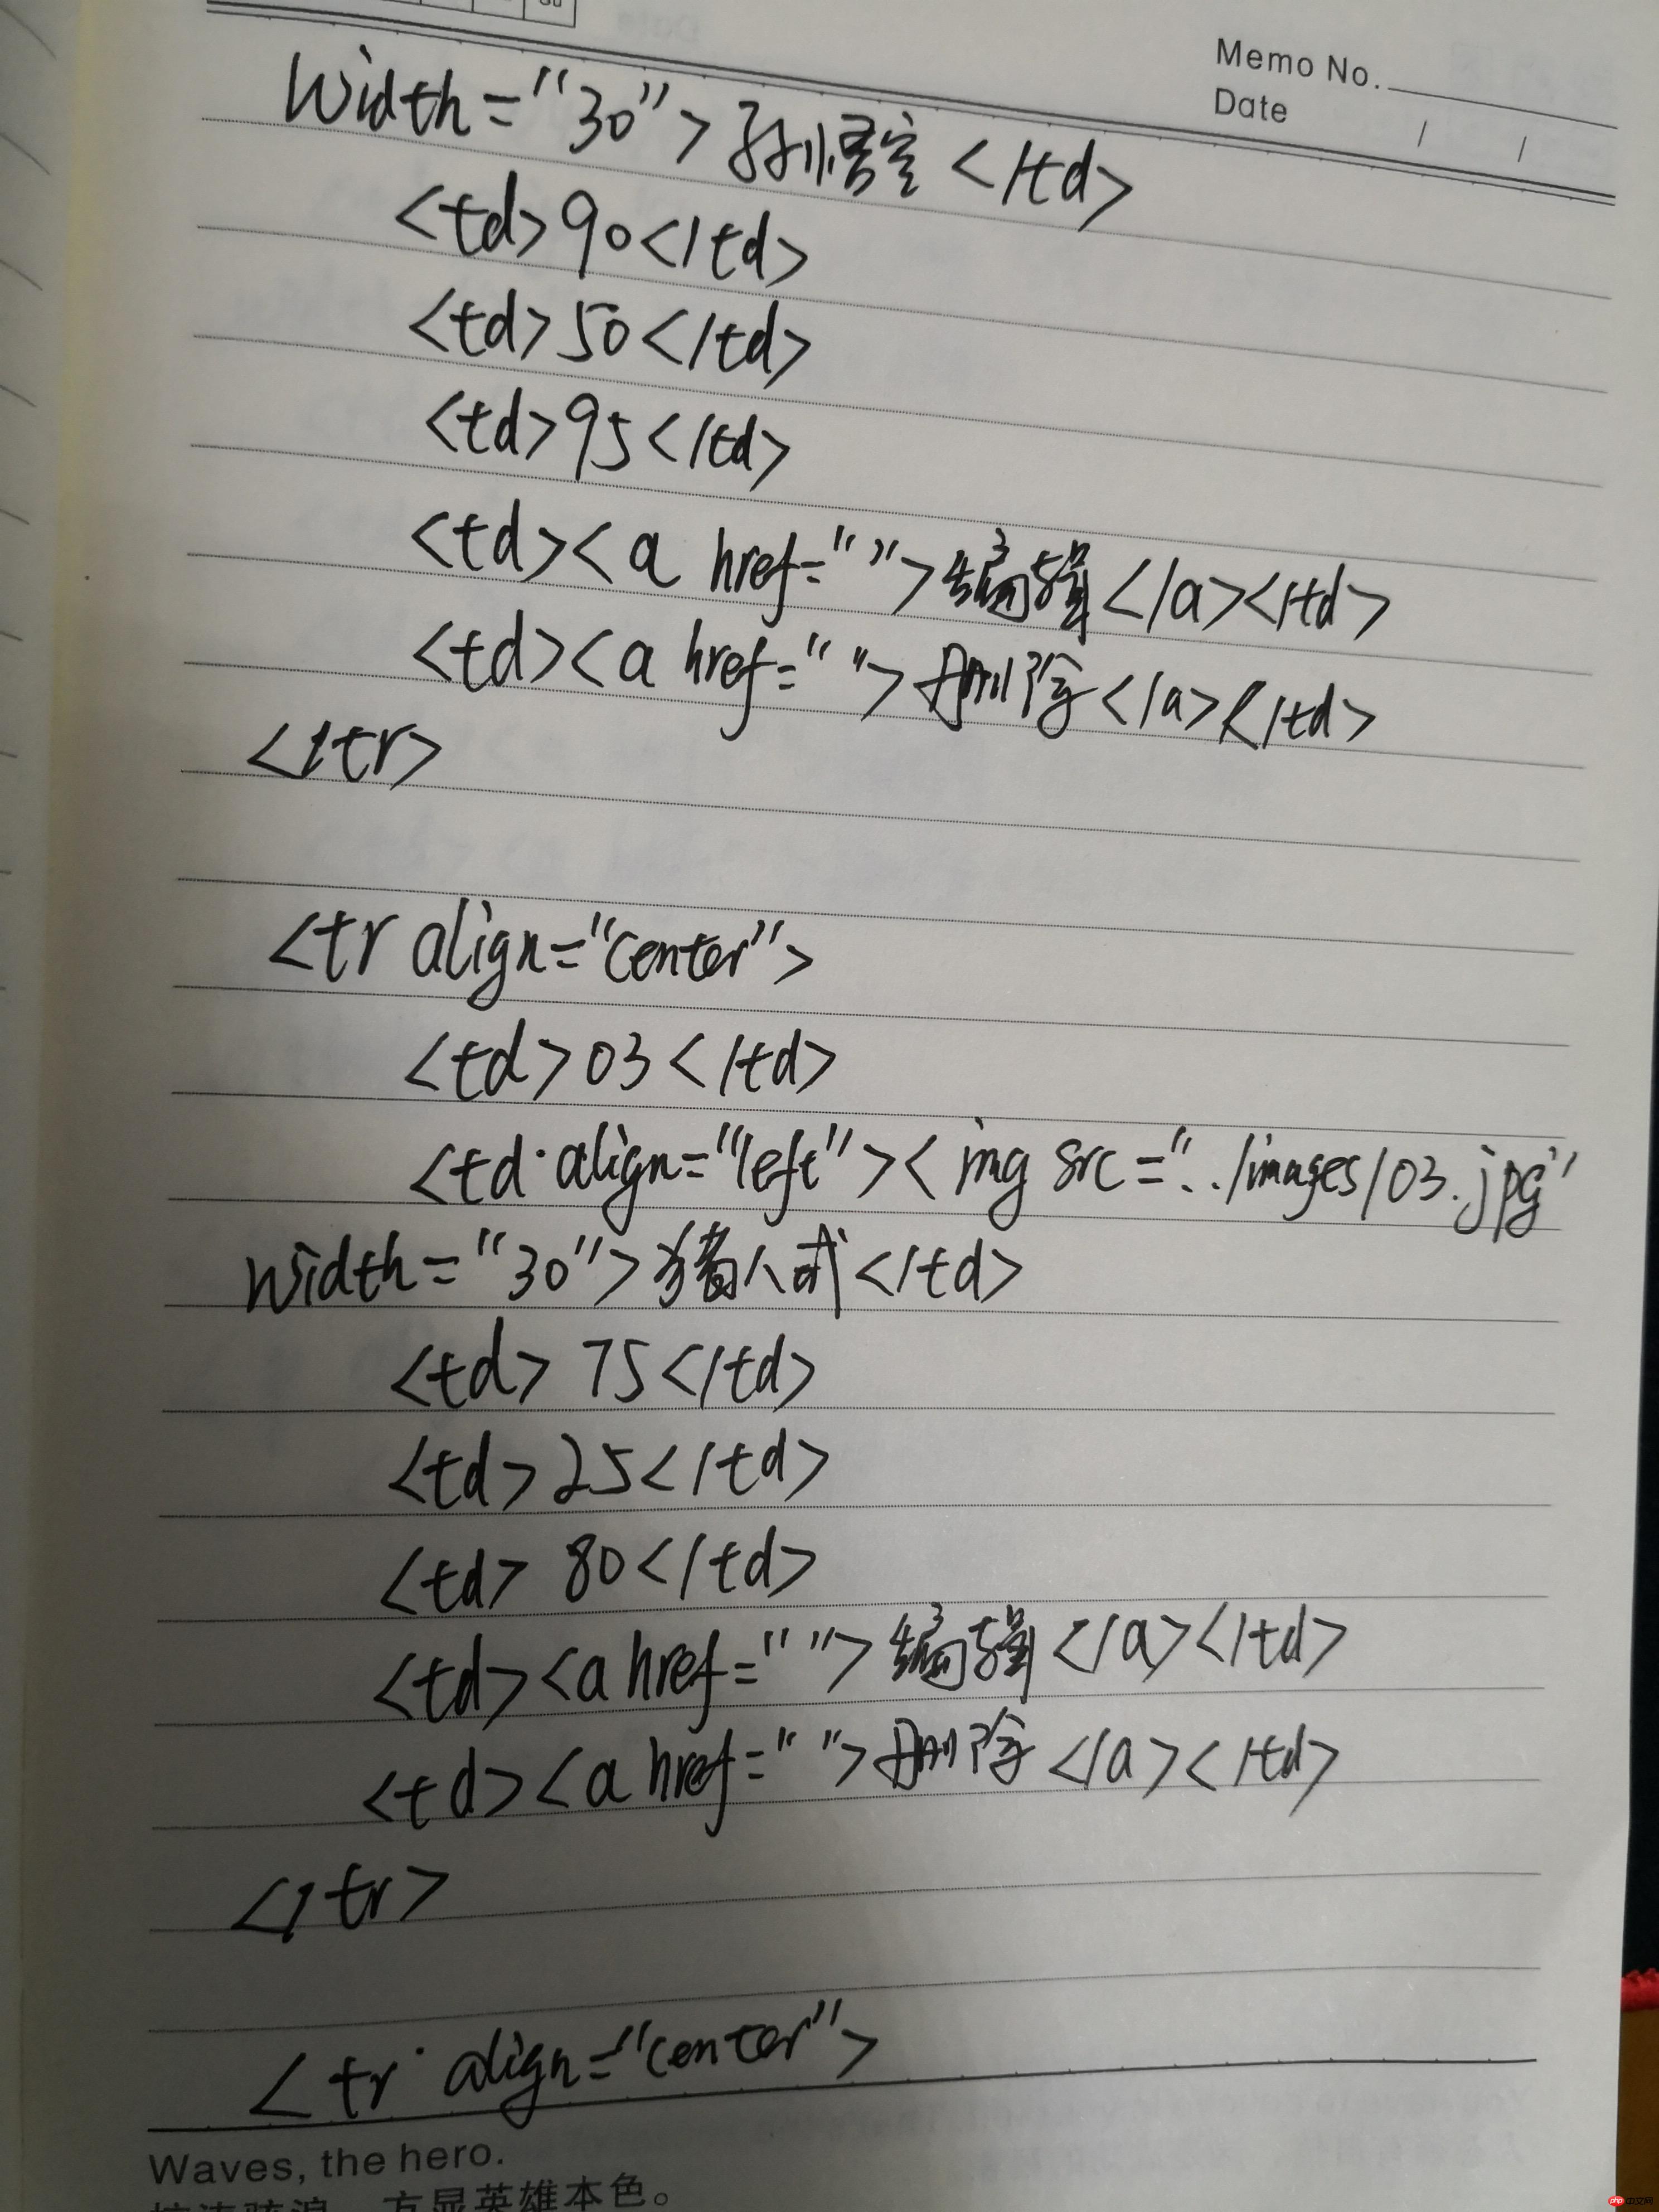 Memo No.
Date / /
Width="30">孙悟空</td>
<td>90</td>
<td>50</td>
<td>95</td>
<td><a href="">编辑</a></td>
<td><a href="">删除</a></td>
</tr>
<tr align="center">
<td>03</td>
<td align="left"><img src="../images/03.jpg"
Width="30">猪八戒</td>
<td>75</td>
<td>25</td>
<td>80</td>
<td><a href="">编辑</a></td>
<td><a href="">删除</a></td>
</tr>
<tr align="center">
Waves, the hero.
方显英雄本色。
php中文网